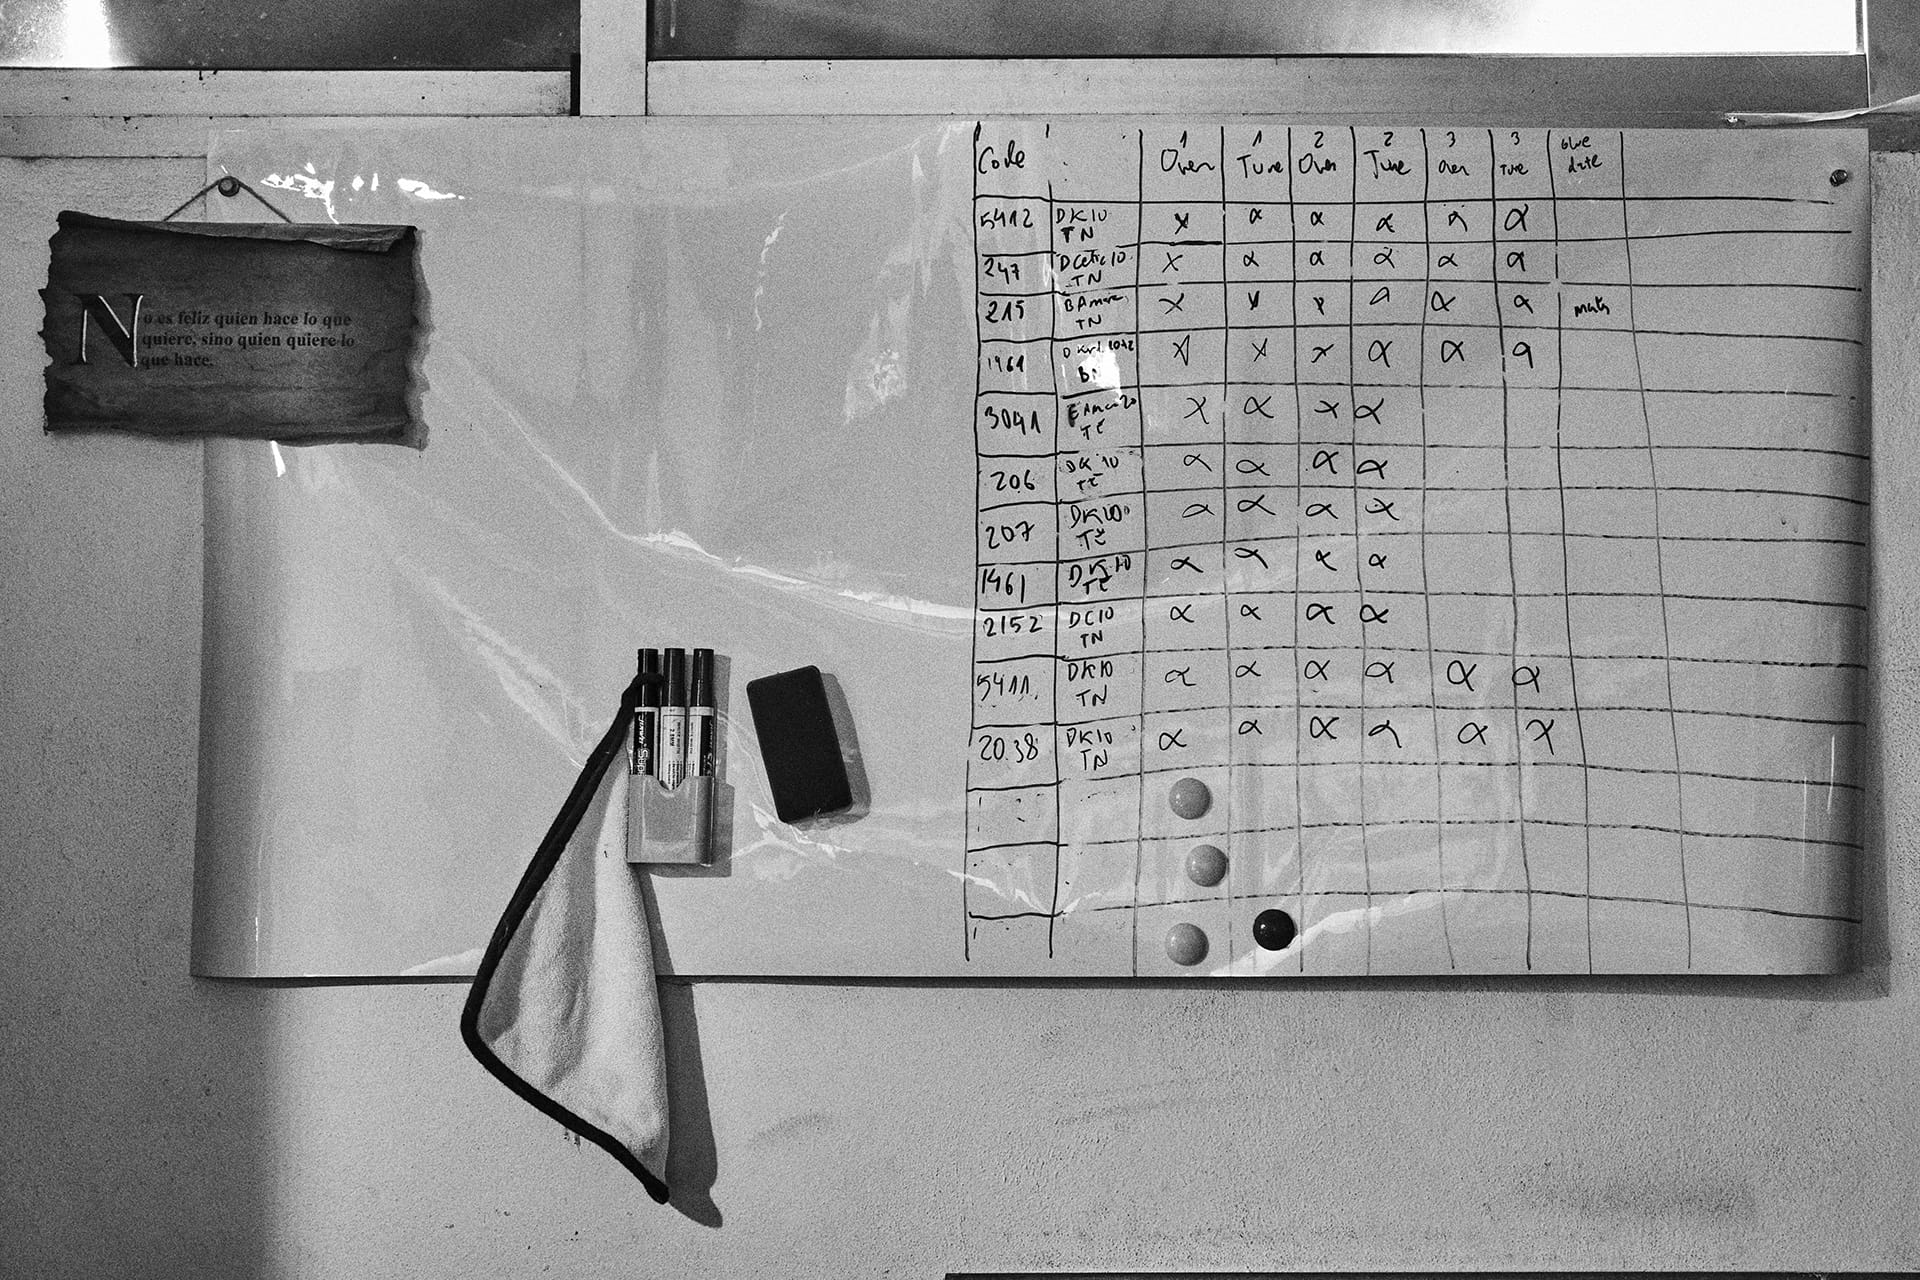 No es feliz quien hace lo que
quiere, sino quien quiere lo
que hace.
Code 1 Oven 1 Tune 2 Oven 2 Tune 3 Oven 3 Tune Glue date
5412 DK10 TN x α α α α α
247 TN x α α α α α
215 TN x x x α α α
1461 x x x α α α
3041 x α x α
206 DK 10 α α α α
207 α α α α
1461 DK10 α α α α
2152 DC10 TN α α α α
5411 DK10 TN α α α α α α
2038 DK10 TN α α α α α α